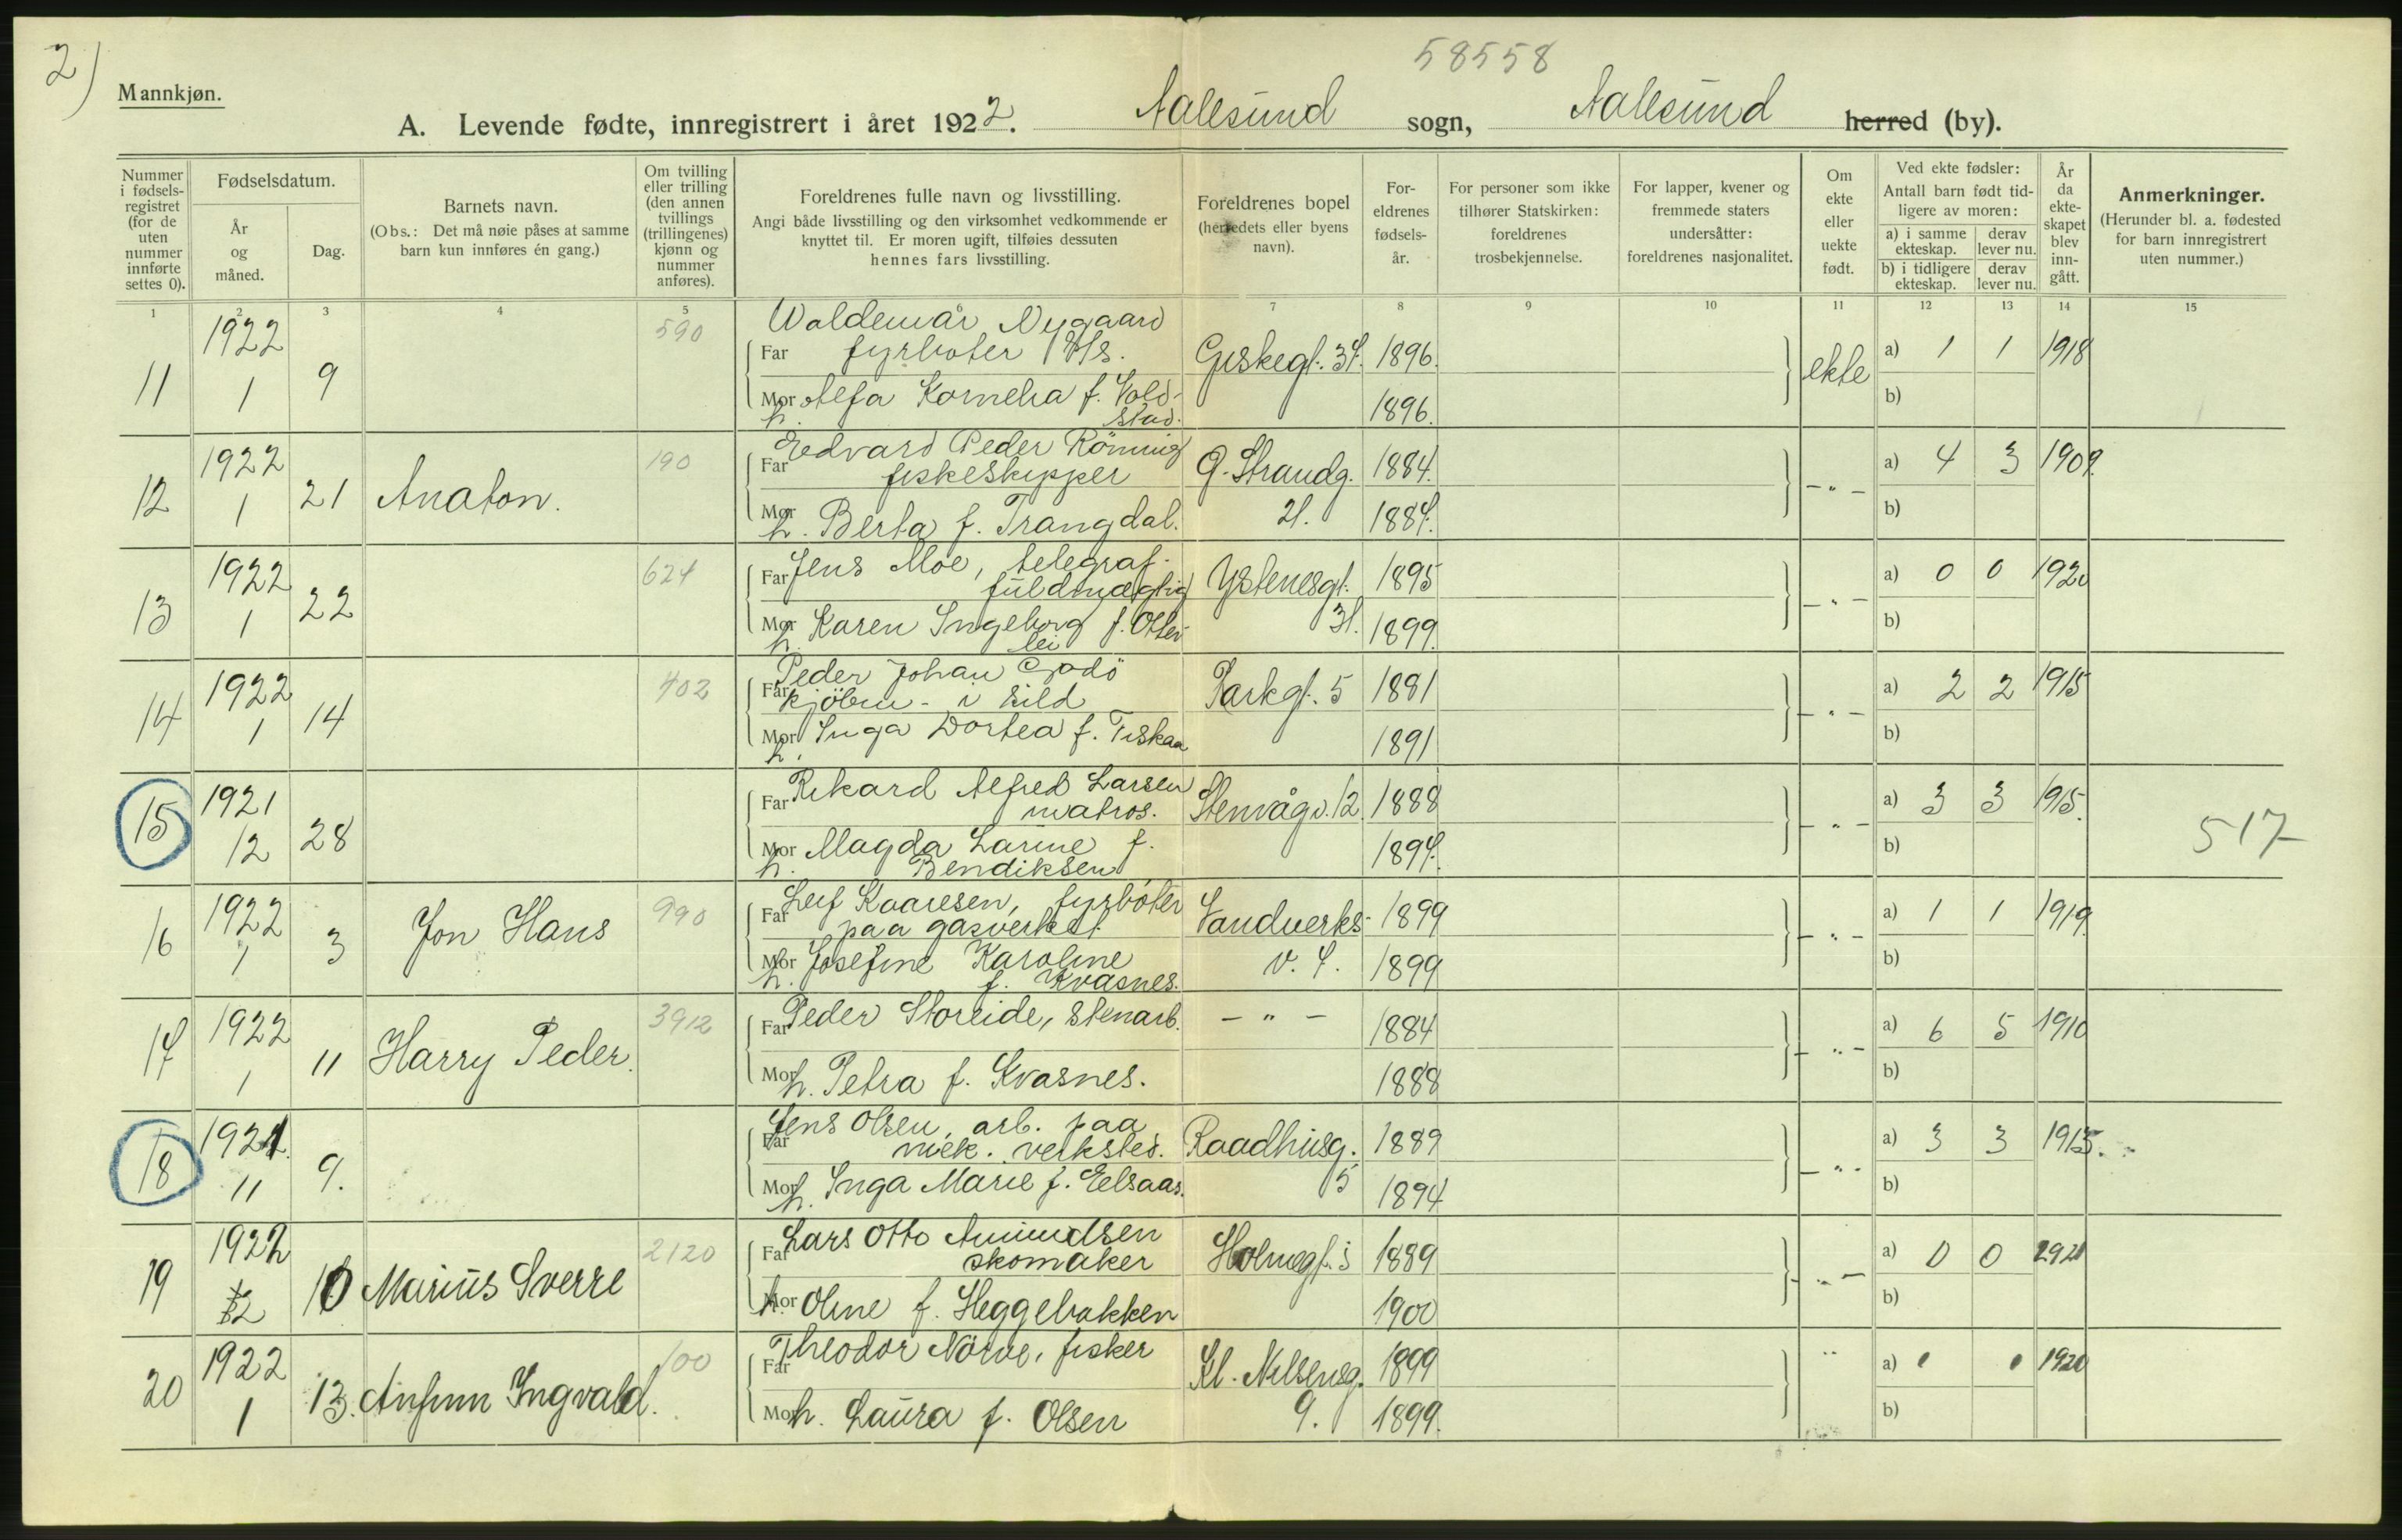 2)
58558
Mannkjøn.
A. Levende fødte, innregistrert i året 1922. Aalesund sogn, Aalesund herred (by).
Nummer i fødsels-registret (for de uten nummer innførte settes 0).
Fødselsdatum.
År og måned.
Dag.
Barnets navn.
(Obs.: Det må nøie påses at samme barn kun innføres én gang.)
Om tvilling eller trilling (den annen tvillings (trillingenes) kjønn og nummer anføres).
Foreldrenes fulle navn og livsstilling.
Angi både livsstilling og den virksomhet vedkommende er knyttet til. Er moren ugift, tilføies dessuten hennes fars livsstilling.
Foreldrenes bopel (herredets eller byens navn).
For-eldrenes fødsels-år.
For personer som ikke tilhører Statskirken: foreldrenes trosbekjennelse.
For lapper, kvener og fremmede staters undersåtter: foreldrenes nasjonalitet.
Om ekte eller uekte født.
Ved ekte fødsler: Antall barn født tid-ligere av moren:
a) i samme ekteskap. derav lever nu.
b) i tidligere ekteskap. derav lever nu.
År da ekte-skapet blev inn-gått.
Anmerkninger.
(Herunder bl. a. fødested for barn innregistrert uten nummer.)
1 2 3 4 5 6 7 8 9 10 11 12 13 14 15
11 1922 1 9 590
Waldemar Nygaard
Far fyrböter
Giskegt. 34. 1896.
ekte a) 1 1 1918
Mor Alfa Kornelia f. Vold-
h. stad. 1896.
b)
12 1922 1 21 Anaton. 190
Edvard Peder Rönning
Far fiskeskipper
Ö. Strandg. 1884.
- " - a) 4 3 1909.
Mor h. Berta f. Trangdal.
21. 1884.
b)
13 1922 1 22 624
Far Jens Moe, telegraf-
fuldmægtig
Ystenesgt. 1895
- " - a) 0 0 1920
Mor Karen Ingeborg f. Otter-
h. lei
31. 1899.
b)
14 1922 1 14 402
Peder Johan Godö
Far kjöbm- i sild
Parkgt. 5 1881
- " - a) 2 2 1915
Mor Inga Dortea f. Fiskaa
h. 1891
b)
15 1921 12 28
Far Rikard Alfred Larsen
matros.
Stenvågv. 12 1888
- " - a) 3 3 1915.
517
Mor Magda Larine f.
h. Bendiksen
1894.
b)
16 1922 1 3 Jon Hans 990
Far Leif Kaaresen, fyrböter
paa gasverket
Vandverks- 1899
- " - a) 1 1 1919.
Mor Josefine Karoline
h. f. Kvasnes.
v. 4. 1899
b)
17 1922 1 11 Harry Peder. 3912
Far Peder Storeide, stenarb.
- " - 1884
- " - a) 6 5 1910
Mor h. Petra f. Kvasnes.
1888
b)
18 1921. 11 9.
Jens Olsen, arb. paa
Far mek. verksted.
Raadhusg. 1889
- " - a) 3 3 1915.
Mor h. Inga Marie f. Eelsaas.
5 1894
b)
19 1922 10 Marius Sverre 2120
Lars Otto Amundsen
Far skomaker
Holmegt. 1889
- " - a) 0 0 1921
Mor h. Oline f. Heggebakken
1900
b)
20 1922 1 13. Anfinn Ingvald. 100
Theodor Nörve, fisker
Far
Kl. Nilseng. 1899
" a) 1920
Mor h. Laura f. Olsen
9. 1899.
b)